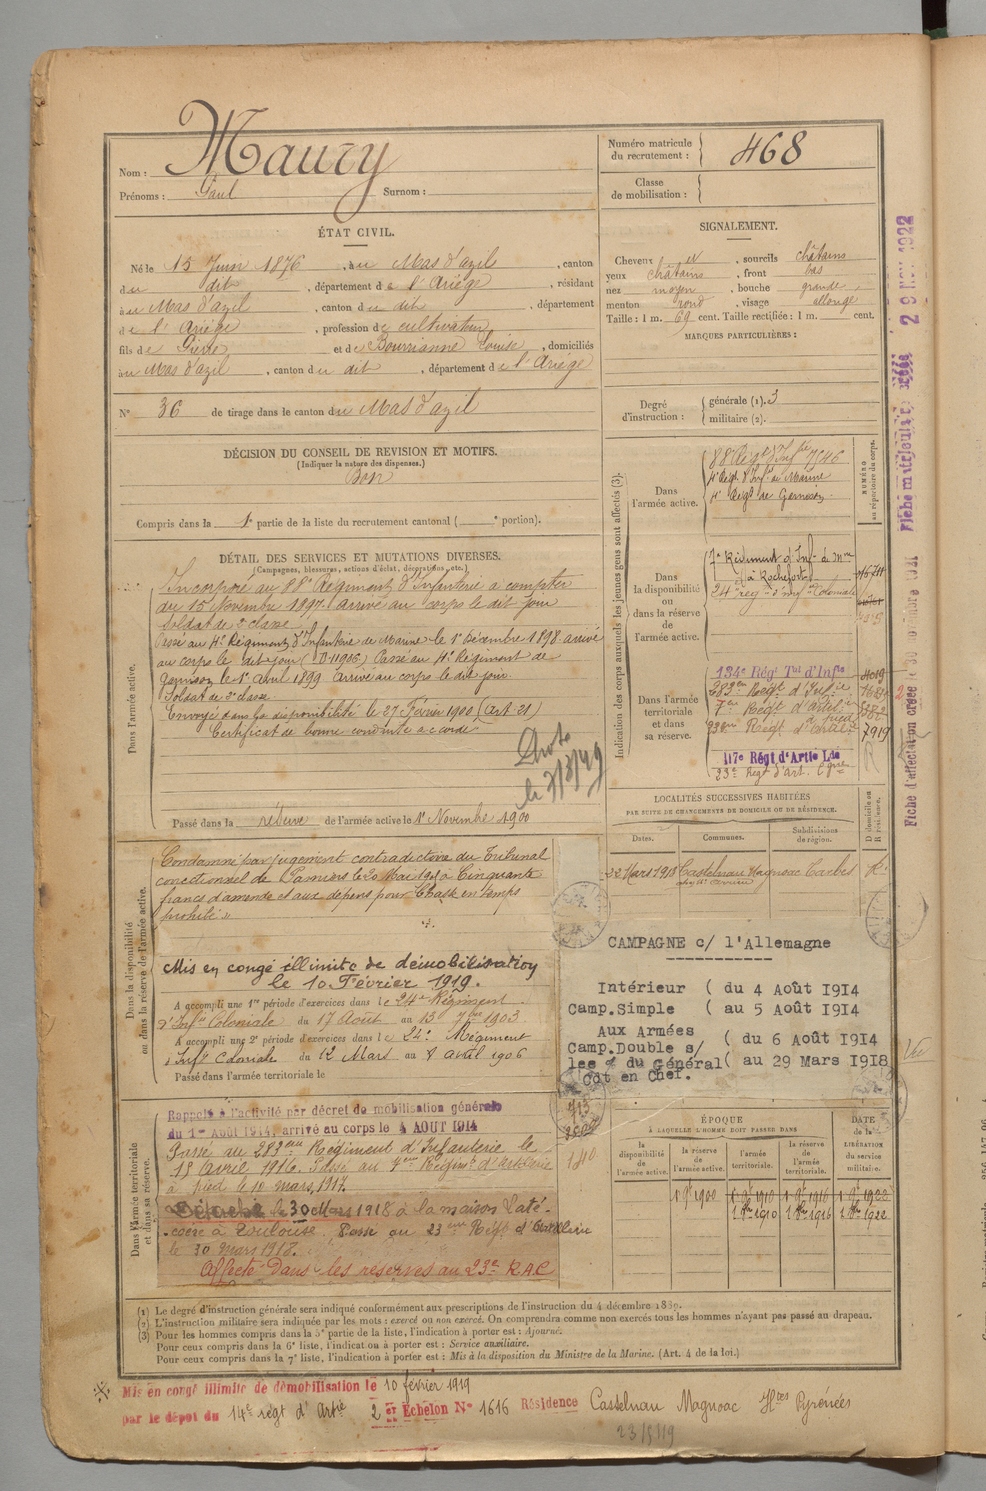 Nom : Maury
Prénoms : Paul Surnom :
Numéro matricule du recrutement : 468
Classe de mobilisation :
ÉTAT CIVIL.
Né le 15 Juin 1876, au Mas d'azil, canton
du dit, département de l'Ariège, résidant
au Mas d'azil, canton du dit, département
de l'Ariège, profession de cultivateur
fils de Pierre et de Bourrianne Louise, domiciliés
au Mas d'azil, canton du dit, département de l'Ariège
N° 36 de tirage dans le canton du Mas d'azil
DÉCISION DU CONSEIL DE REVISION ET MOTIFS.
(Indiquer la nature des dispenses.)
Bon
Compris dans la 1e partie de la liste du recrutement cantonal ( e portion).
SIGNALEMENT.
Cheveux et, sourcils châtains
yeux châtains, front bas
nez moyen, bouche grande,
menton rond, visage allongé
Taille : 1 m. 69 cent. Taille rectifiée : 1 m. cent.
MARQUES PARTICULIÈRES :
Degré d'instruction : générale (1). 3
militaire (2).
DÉTAIL DES SERVICES ET MUTATIONS DIVERSES.
(Campagnes, blessures, actions d'éclat, décorations, etc.)
Dans l'armée active.
Incorporé au 88e Régiment d'Infanterie à compter
du 15 Novembre 1897. arrivé au corps le dit jour
Soldat de 2e classe
Passé au 4e Régiment d'Infanterie de Marine le 1er Décembre 1898 arrivé
au corps le dit jour ( 11906) Passé au 4e Régiment de
Garnison le 1er Avril 1899 arrivé au corps le dit jour.
Soldat de 2e classe
Envoyé dans la disponibilité le 27 Février 1900 (art. 21)
Certificat de bonne conduite accordé
le 7/3/49
Passé dans la réserve de l'armée active le 1er Novembre 1900
Indication des corps auxquels les jeunes gens sont affectés (3).
NUMÉRO au répertoire du corps.
Dans l'armée active.
88e Régt d'Infrie 7546
4e Régt d'Infie de Marine
4e Régt de Garnison
Dans la disponibilité ou dans la réserve de l'armée active.
7e Régiment d'Infie de Mne
à Rochefort
24e rég d'infie Coloniale
Dans l'armée territoriale et dans sa réserve.
134e Régt Tal d'Infie 4019
283em Regt d'Infie
7em Regt d'artie
à pied
23em Regt d'artie 7919
117e Régt d'Artie Lde
23e Régt d'art. Cgne
Fiche matriculaire créée 29 NOV 1922
LOCALITÉS SUCCESSIVES HABITÉES
PAR SUITE DE CHANGEMENTS DE DOMICILE OU DE RÉSIDENCE.
Dates. Communes. Subdivisions de région. D domicile ou R résidence.
22 Mars 1918 Castelnau Magnoac Tarbes R.
Dans la disponibilité ou dans la réserve de l'armée active.
Condamné par jugement contradictoire du Tribunal
correctionnel de Pamiers le 20 Mai 1901 à Cinquante
francs d'amende et aux dépens pour Chasse en temps
prohibé "
Mis en congé illimité de démobilisation
le 10 Février 1919.
A accompli une 1re période d'exercices dans le 24e Régiment
d'Infie Coloniale du 17 Août au 13 7bre 1903
A accompli une 2e période d'exercices dans le 24e Régiment
Infie Coloniale du 12 Mars au 8 avril 1906
Passé dans l'armée territoriale le
CAMPAGNE c/ l'Allemagne
Intérieur ( du 4 Août 1914
Camp.Simple ( au 5 Août 1914
Aux Armées
Camp.Double s/ ( du 6 Août 1914
les du Général ( au 29 Mars 1918
Cdt en Chef.
Dans l'armée territoriale et dans sa réserve.
Rappelé à l'activité par décret de mobilisation générale
du 1er Août 1914, arrivé au corps le 4 AOUT 1914
Passé au 283em Régiment d'Infanterie le
15 avril 1916. Passé au 7em Régimt d'Artillerie
à pied le 10 mars 1917.
Détaché le 30 Mars 1918 à la maison Laté-
coère à Toulouse. Passé au 23em Régt d'Artillerie
le 30 mars 1918.
Affecté dans les réserves au 23e R.A.C
ÉPOQUE
À LAQUELLE L'HOMME DOIT PASSER DANS
la disponibilité de l'armée active. la réserve de l'armée active. l'armée territoriale. la réserve de l'armée territoriale. DATE de la LIBÉRATION du service militaire.
1 9bre 1900 1 9bre 1910 1 9bre 1916 1 9bre 1922
1 8bre 1910 1 8bre 1916 1 8bre 1922
(1) Le degré d'instruction générale sera indiqué conformément aux prescriptions de l'instruction du 4 décembre 1889.
(2) L'instruction militaire sera indiquée par les mots : exercé ou non exercé. On comprendra comme non exercés tous les hommes n'ayant pas passé au drapeau.
(3) Pour les hommes compris dans la 5e partie de la liste, l'indication à porter est : Ajourné.
Pour ceux compris dans la 6e liste, l'indication à porter est : Service auxiliaire.
Pour ceux compris dans la 7e liste, l'indication à porter est : Mis à la disposition du Ministre de la Marine. (Art. 4 de la loi.)
Mis en congé illimité de démobilisation le 10 février 1919
par le dépôt du 14e régt d'Artie 2 er Echelon N° 1616 Résidence Castelnau Magnoac Htes Pyrénées
23/5/19